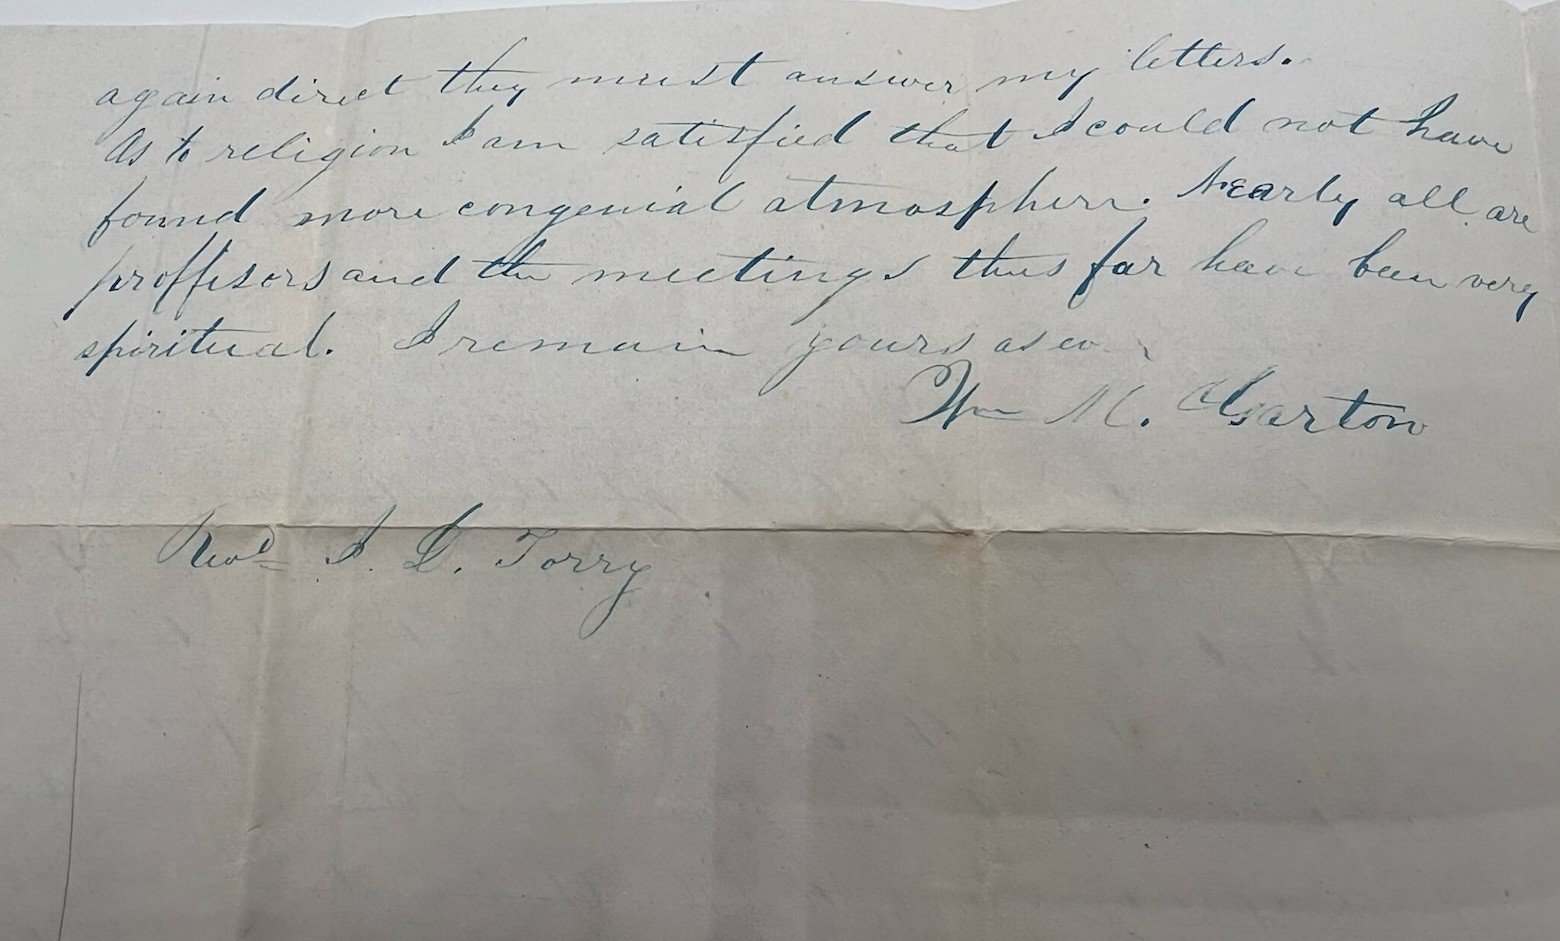 again direct they must answer my letters.
As to religion I am satisfied that I could not have
found more congenial atmosphere. Nearly all are
proffesors and the meetings thus far have been very
spiritual. I remain yours as ever
Wm M. Garton
Revd I. D. Torry